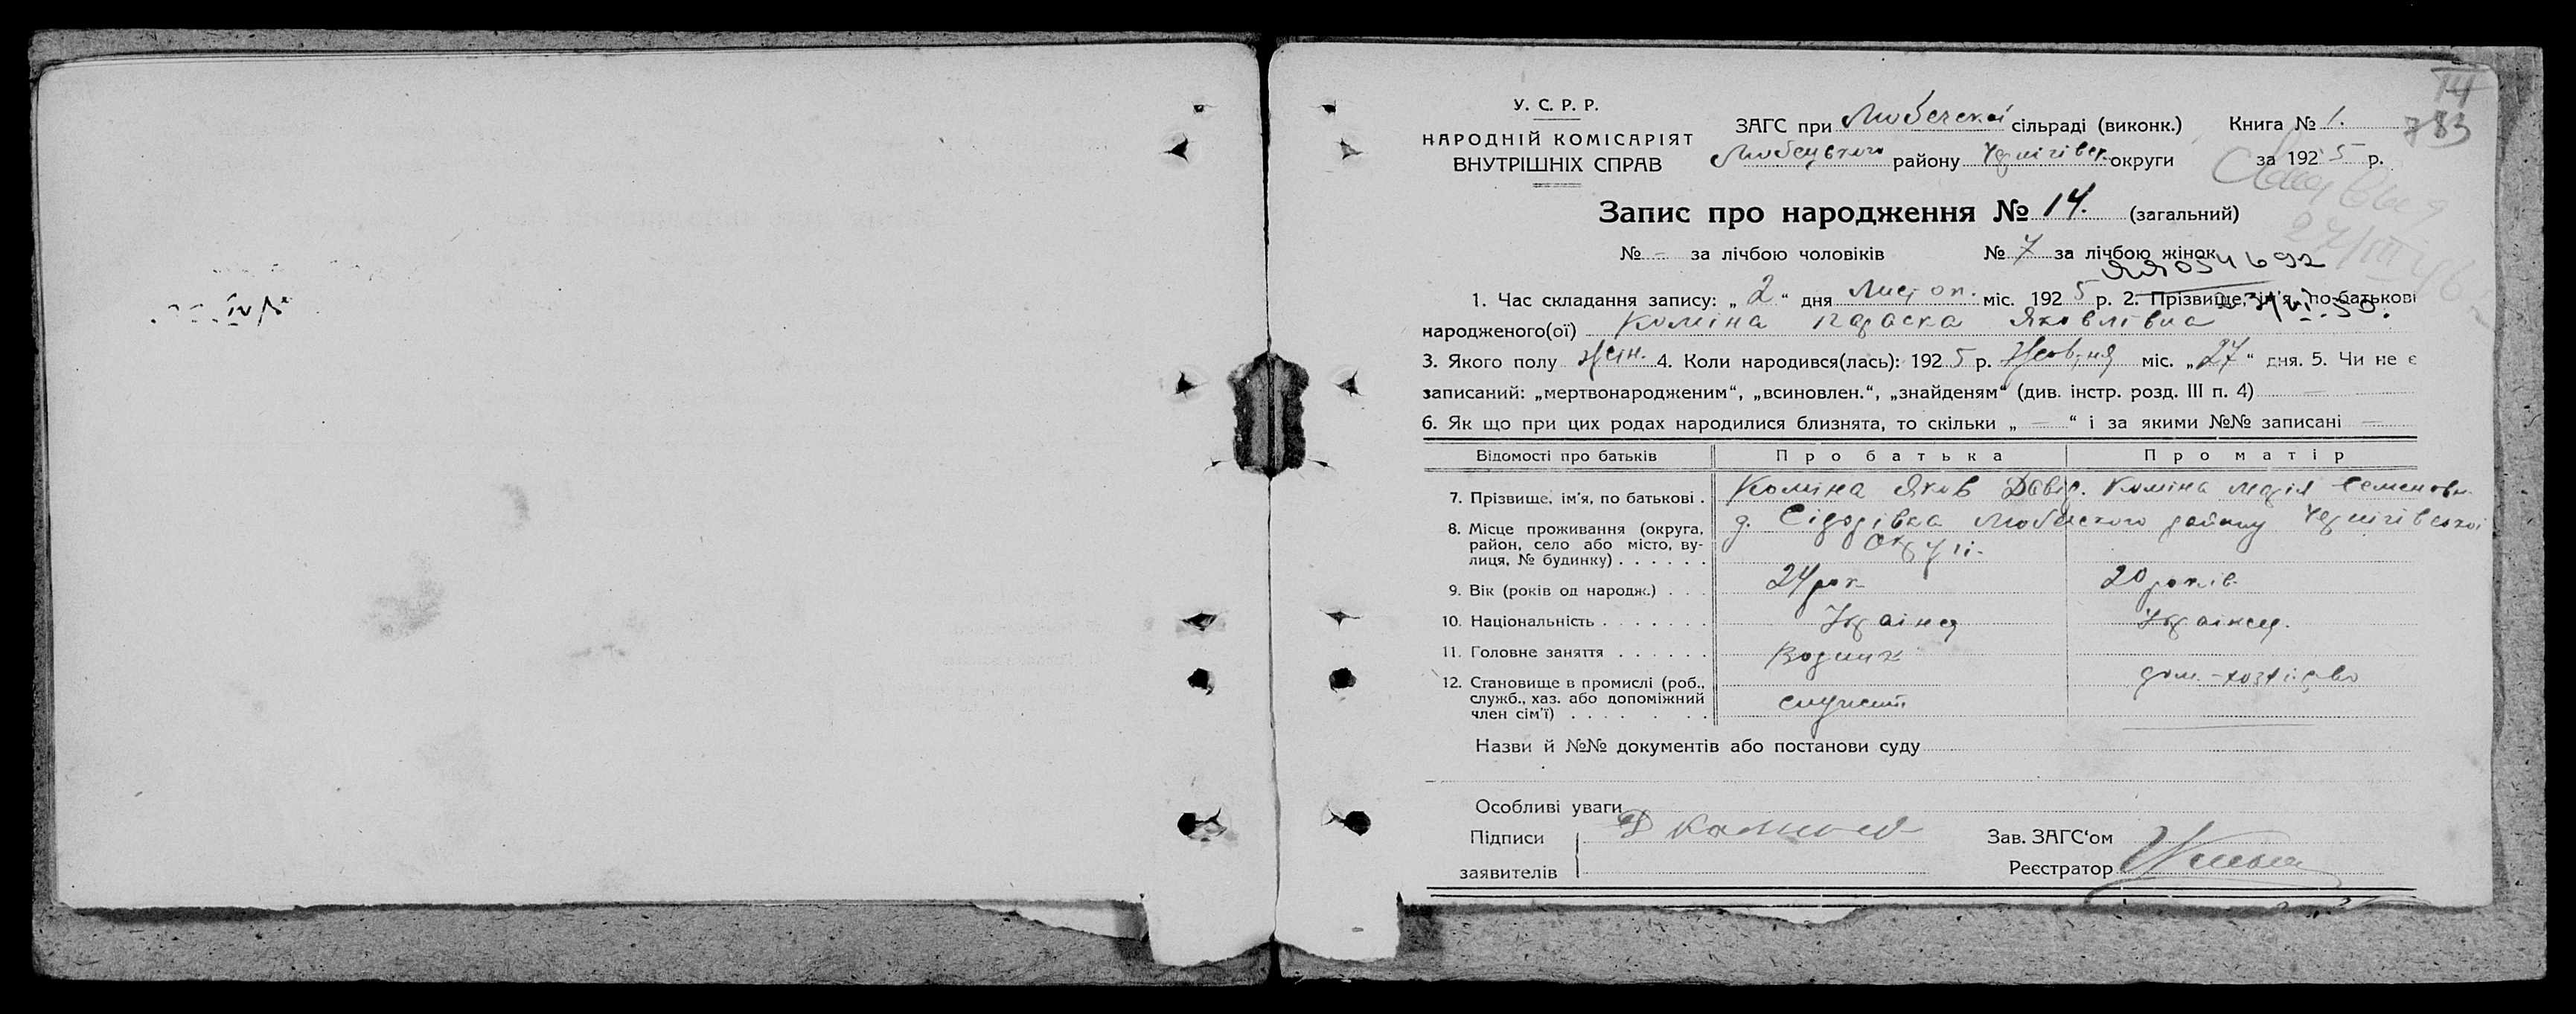 14
783
У. С. Р. Р.
НАРОДНІЙ КОМІСАРІЯТ
ВНУТРІШНІХ СПРАВ
ЗАГС при Любечскої сільраді (виконк.) Книга № 1.
Любецького району Чернігівс. округи за 1925 р.
Запис про народження № 14. (загальний)
№ - за лічбою чоловіків № 7 за лічбою жінок
1. Час складання запису: „ 2 “ дня Листоп. міс. 1925 р. 2. Прізвище, ім'я, по-батькові
народженого(ої) Коміна Параска Яковлівна
3. Якого полу жін. 4. Коли народився(лась): 1925 р. Жовтня міс. „ 27 “ дня. 5. Чи не є
записаний: „мертвонародженим“, „всиновлен.“, „знайденям“ (див. інстр. розд. III п. 4) —
6. Як що при цих родах народилися близнята, то скільки „ — “ і за якими №№ записані —
Відомості про батьків Про батька Про матір
7. Прізвище, ім'я, по батькові . Коміна Яків Давід. Коміна Марія Семеновн.
8. Місце проживання (округа, район, село або місто, ву-
лиця, № будинку) . . . . . .
д. Сідорівка Любецкого району Чернігівської
Округи.
9. Вік (років од народж.) . . . 24 рок 20 років
10. Національність . . . . . . . Україн Українц.
11. Головне заняття . . . . . . Водник дом-хозяйство
12. Становище в промислі (роб., служб., хаз. або допоміжний
член сім'ї) . . . . . . . служит
Назви й №№ документів або постанови суду
Особливі уваги
Підписи
заявителів
Зав. ЗАГС‘ом
Реєстратор